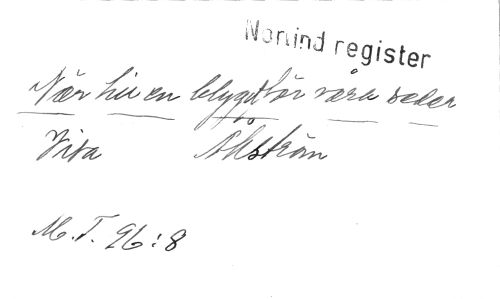 Norlind register
När hu en blygd för våra seder
Visa Ahlström
M.T. 96:8